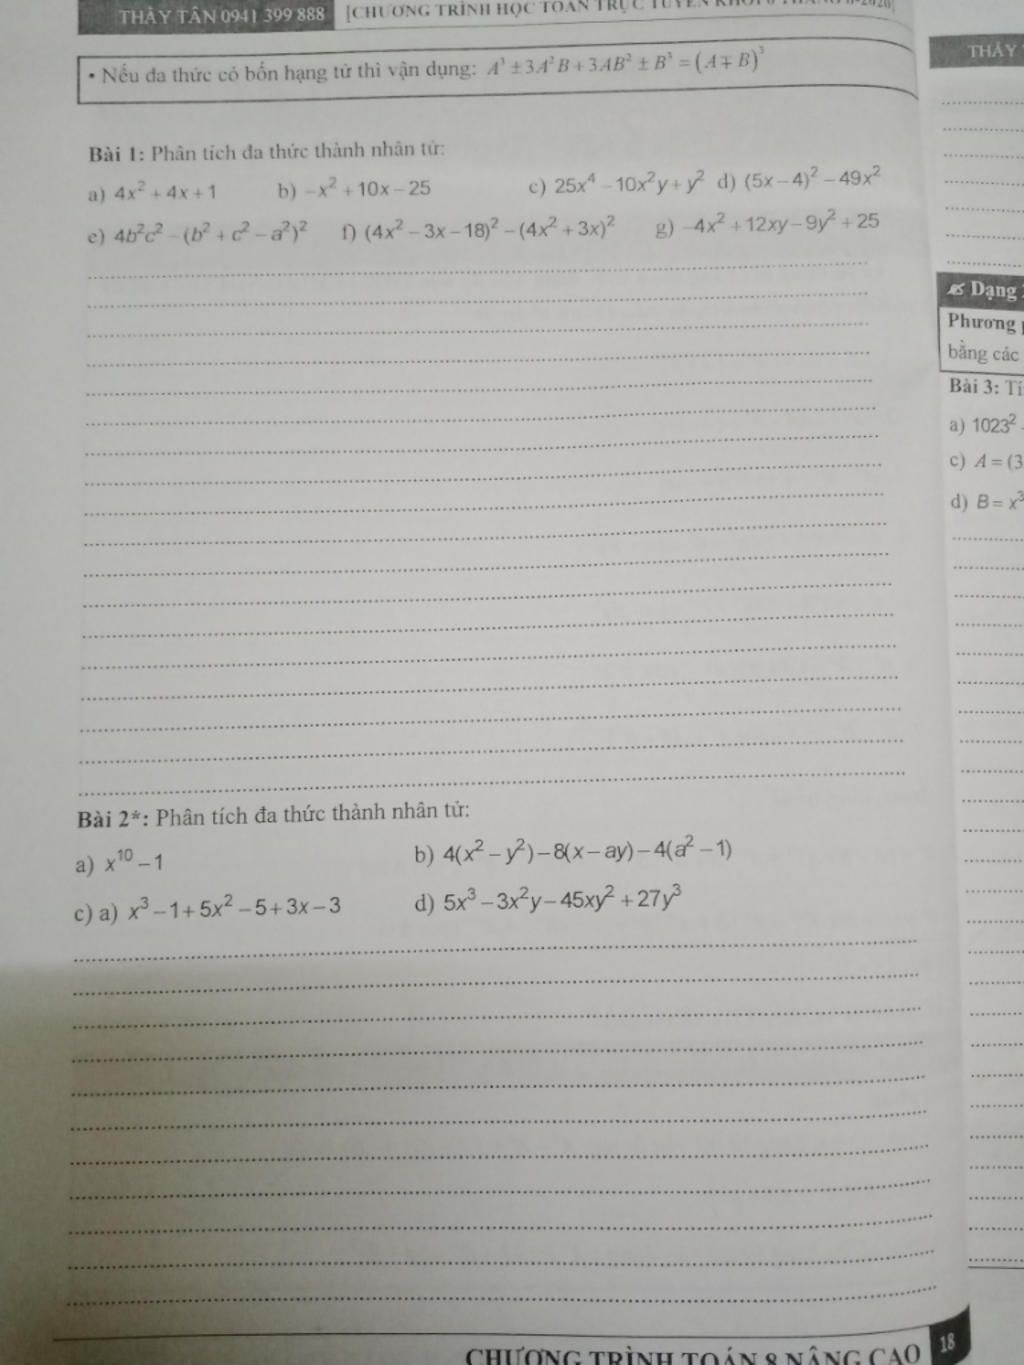 THẦY TÂN 0941 399 888 [CHƯƠNG TRÌNH HỌC TOÁN TRỰC TUYẾN
• Nếu đa thức có bốn hạng tử thì vận dụng: A³ ± 3A²B + 3AB² ± B³ = (A ∓ B)³
Bài 1: Phân tích đa thức thành nhân tử:
a) 4x² + 4x + 1 b) −x² + 10x − 25 c) 25x⁴ − 10x²y + y² d) (5x − 4)² − 49x²
e) 4b²c² − (b² + c² − a²)² f) (4x² − 3x − 18)² − (4x² + 3x)² g) −4x² + 12xy − 9y² + 25
Bài 2*: Phân tích đa thức thành nhân tử:
a) x¹⁰ − 1 b) 4(x² − y²) − 8(x − ay) − 4(a² − 1)
c) a) x³ − 1 + 5x² − 5 + 3x − 3 d) 5x³ − 3x²y − 45xy² + 27y³
CHƯƠNG TRÌNH TOÁN 8 NÂNG CAO 18
THẦY
Dạng
Phương
bằng các
Bài 3:
a) 1023²
c) A = (3
d) B = x³